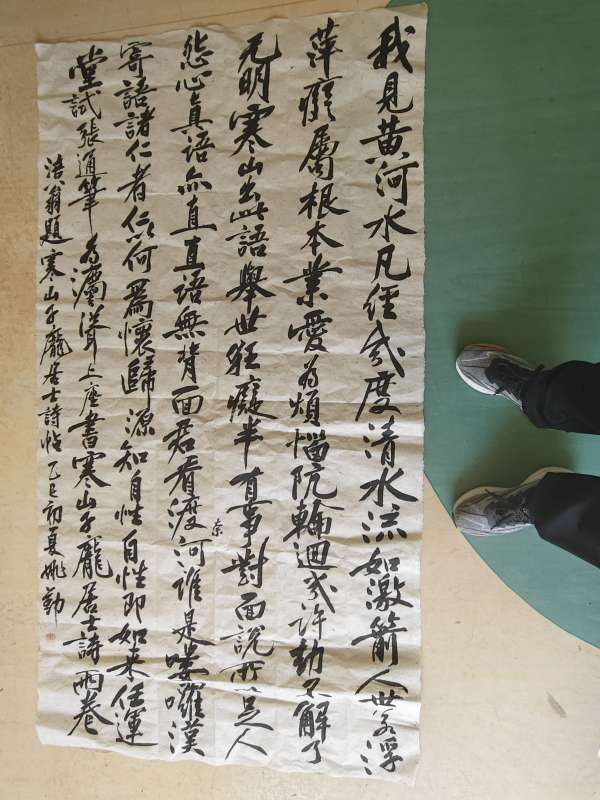 我見黄河水凡經幾度清水流如激箭人世若浮
萍癡屬根本業愛為煩惱阬輪迴幾許劫不解了
元明寒山出此語舉世狂癡半有事對面說所以足人
怨心真語亦直直語無背面君看渡河誰是嘍囉漢
奈
寄語諸仁者仁以何爲懷歸源知自性自性即如来任運
堂試張通筆 為灋聳上座書寒山子龐居士詩兩卷
涪翁題寒山子龐居士詩帖 乙巳初夏姚勤